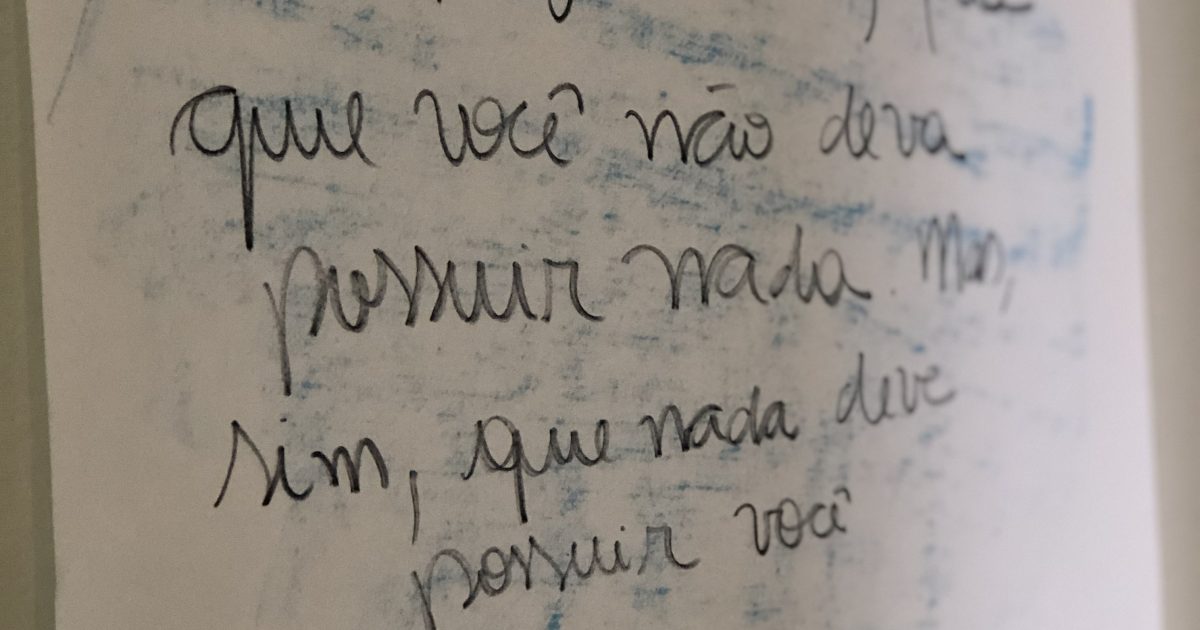 que você não deva
possuir nada. Mas,
sim, que nada deve
possuir você